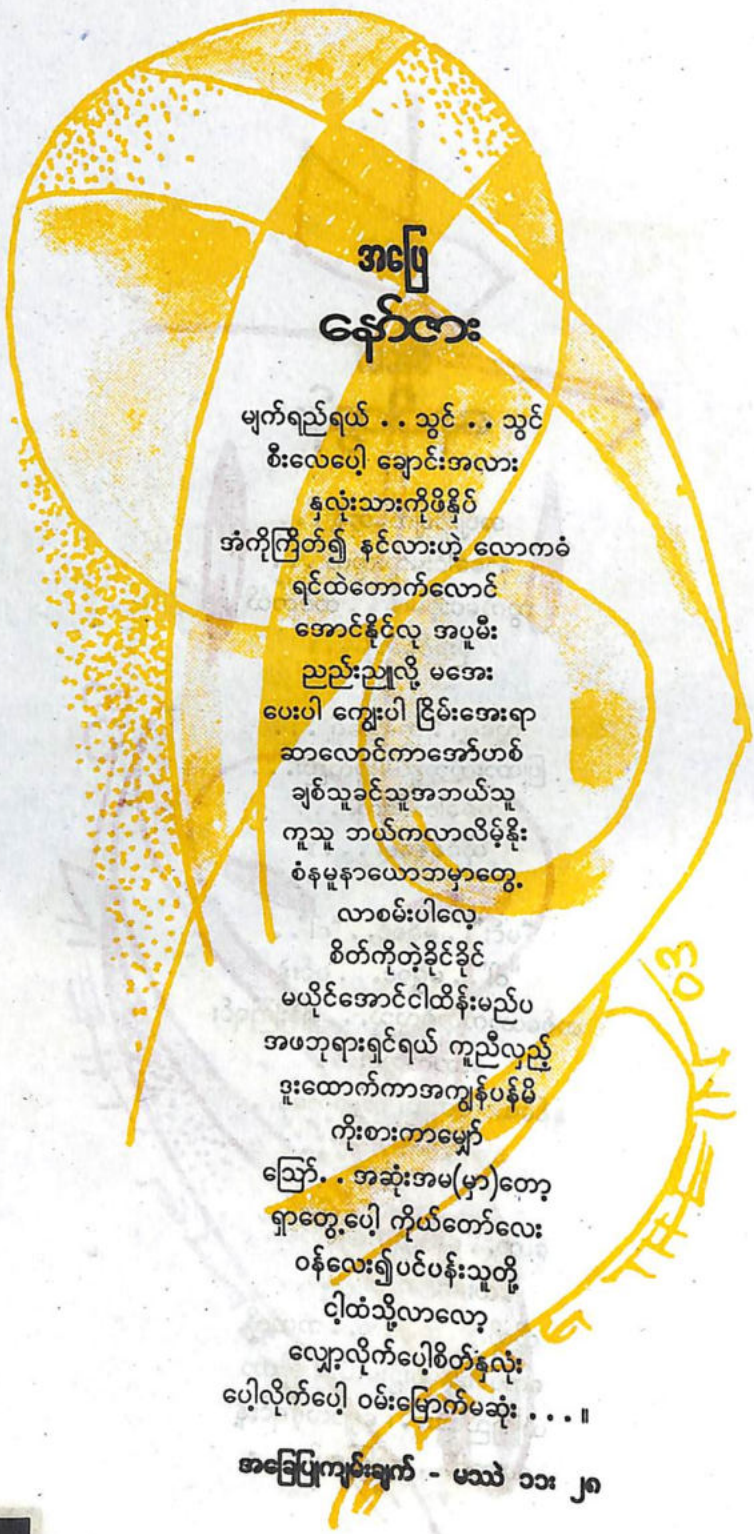 အဖြေ
နော်ဇား
မျက်ရည်ရယ် . . သွင် . . သွင်
စီးလေပေါ့ ချောင်းအလား
နှလုံးသားကိုဖိနှိပ်
အံကိုကြိတ်၍ နင်လားဟဲ့ လောကဓံ
ရင်ထဲတောက်လောင်
အောင်နိုင်လု အပူမီး
ညည်းညူလို့ မအေး
ပေးပါ ကျွေးပါ ငြိမ်းအေးရာ
ဆာလောင်ကာအော်ဟစ်
ချစ်သူခင်သူအဘယ်သူ
ကူသူ ဘယ်ကလာလိမ့်နိုး
စံနမူနာယောဘမှာတွေ့
လာစမ်းပါလေ့
စိတ်ကိုတဲ့ခိုင်ခိုင်
မယိုင်အောင်ငါထိန်းမည်ပ
အဖဘုရားရှင်ရယ် ကူညီလှည့်
ဒူးထောက်ကာအကျွန်ပန်မိ
ကိုးစားကာမျှော်
ဪ. . အဆုံးအမ(မှာ)တော့
ရှာတွေ့ပေါ့ ကိုယ်တော်လေး
ဝန်လေး၍ပင်ပန်းသူတို့
ငါ့ထံသို့လာလော့
လျှော့လိုက်ပေါ့စိတ်နှလုံး
ပေါ့လိုက်ပေါ့ ဝမ်းမြောက်မဆုံး . . . ။
အခြေပြုကျမ်းချက် - မဿဲ ၁၁း ၂၈